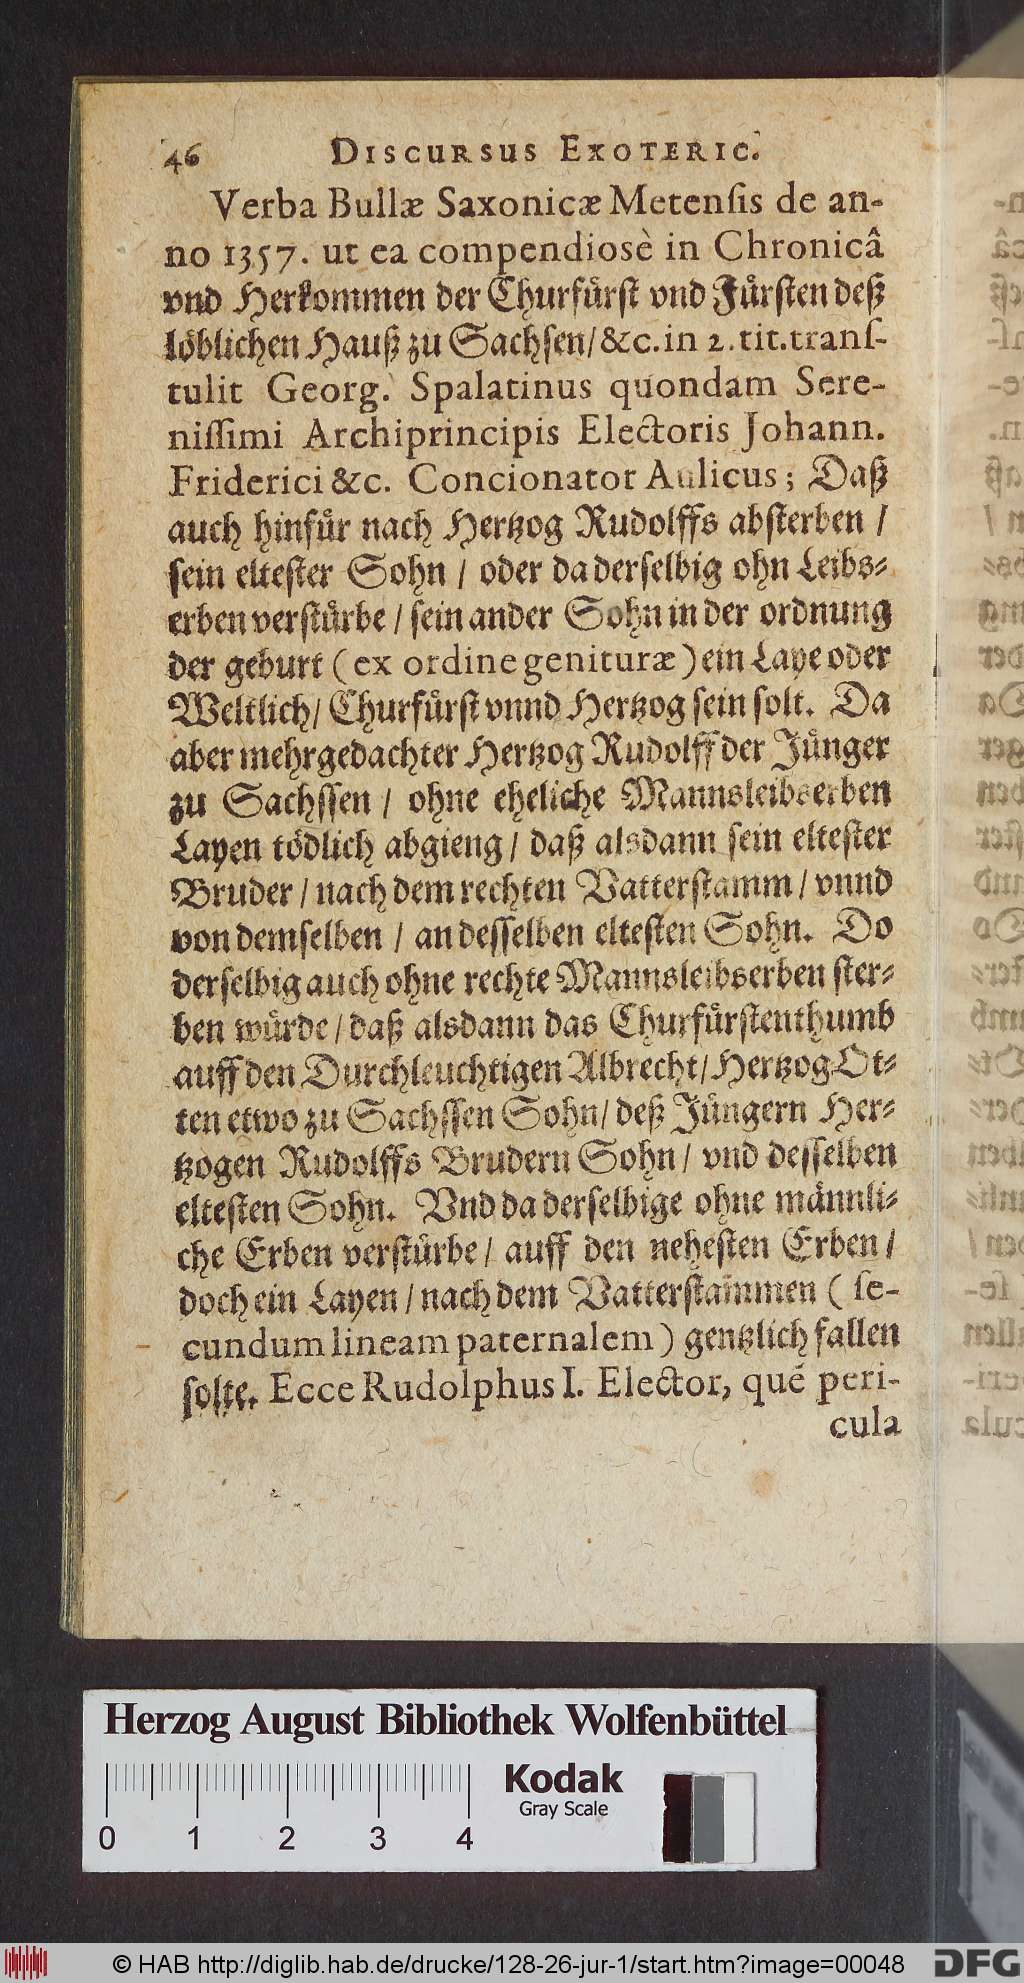 46 DISCURSUS EXOTERIC.
Verba Bullæ Saxonicæ Metenſis de an-
no 1357. ut ea compendiosè in Chronicâ
vnd Herkommen der Churfürſt vnd Fürſten deß
löblichen Hauß zu Sachſen/ &c. in 2. tit. tranſ-
tulit Georg. Spalatinus quondam Sere-
niſſimi Archiprincipis Electoris Johann.
Friderici &c. Concionator Aulicus; Daß
auch hinfür nach Hertzog Rudolffs abſterben /
ſein elteſter Sohn / oder da derſelbig ohn Leibs-
erben verſtürbe / ſein ander Sohn in der ordnung
der geburt ( ex ordine genituræ ) ein Laye oder
Weltlich/ Churfürſt vnnd Hertzog ſein ſolt. Da
aber mehrgedachter Hertzog Rudolff der Jünger
zu Sachſſen / ohne eheliche Mannsleibserben
Layen tödlich abgieng / daß alsdann ſein elteſter
Bruder / nach dem rechten Vatterſtamm / vnnd
von demſelben / an deſſelben elteſten Sohn. Do
derſelbig auch ohne rechte Mannsleibserben ſter-
ben würde / daß alsdann das Churfürſtenthumb
auff den Durchleuchtigen Albrecht/ Hertzog Ot-
ten etwo zu Sachſſen Sohn/ deß Jüngern Her-
tzogen Rudolffs Brudern Sohn / vnd deſſelben
elteſten Sohn. Vnd da derſelbige ohne männli-
che Erben verſtürbe / auff den neheſten Erben /
doch ein Layen / nach dem Vatterſtammen ( ſe-
cundum lineam paternalem ) gentzlich fallen
ſolte. Ecce Rudolphus I. Elector, quē peri-
cula
Herzog August Bibliothek Wolfenbüttel
Kodak
Gray Scale
0 1 2 3 4
© HAB http://diglib.hab.de/drucke/128-26-jur-1/start.htm?image=00048
DFG